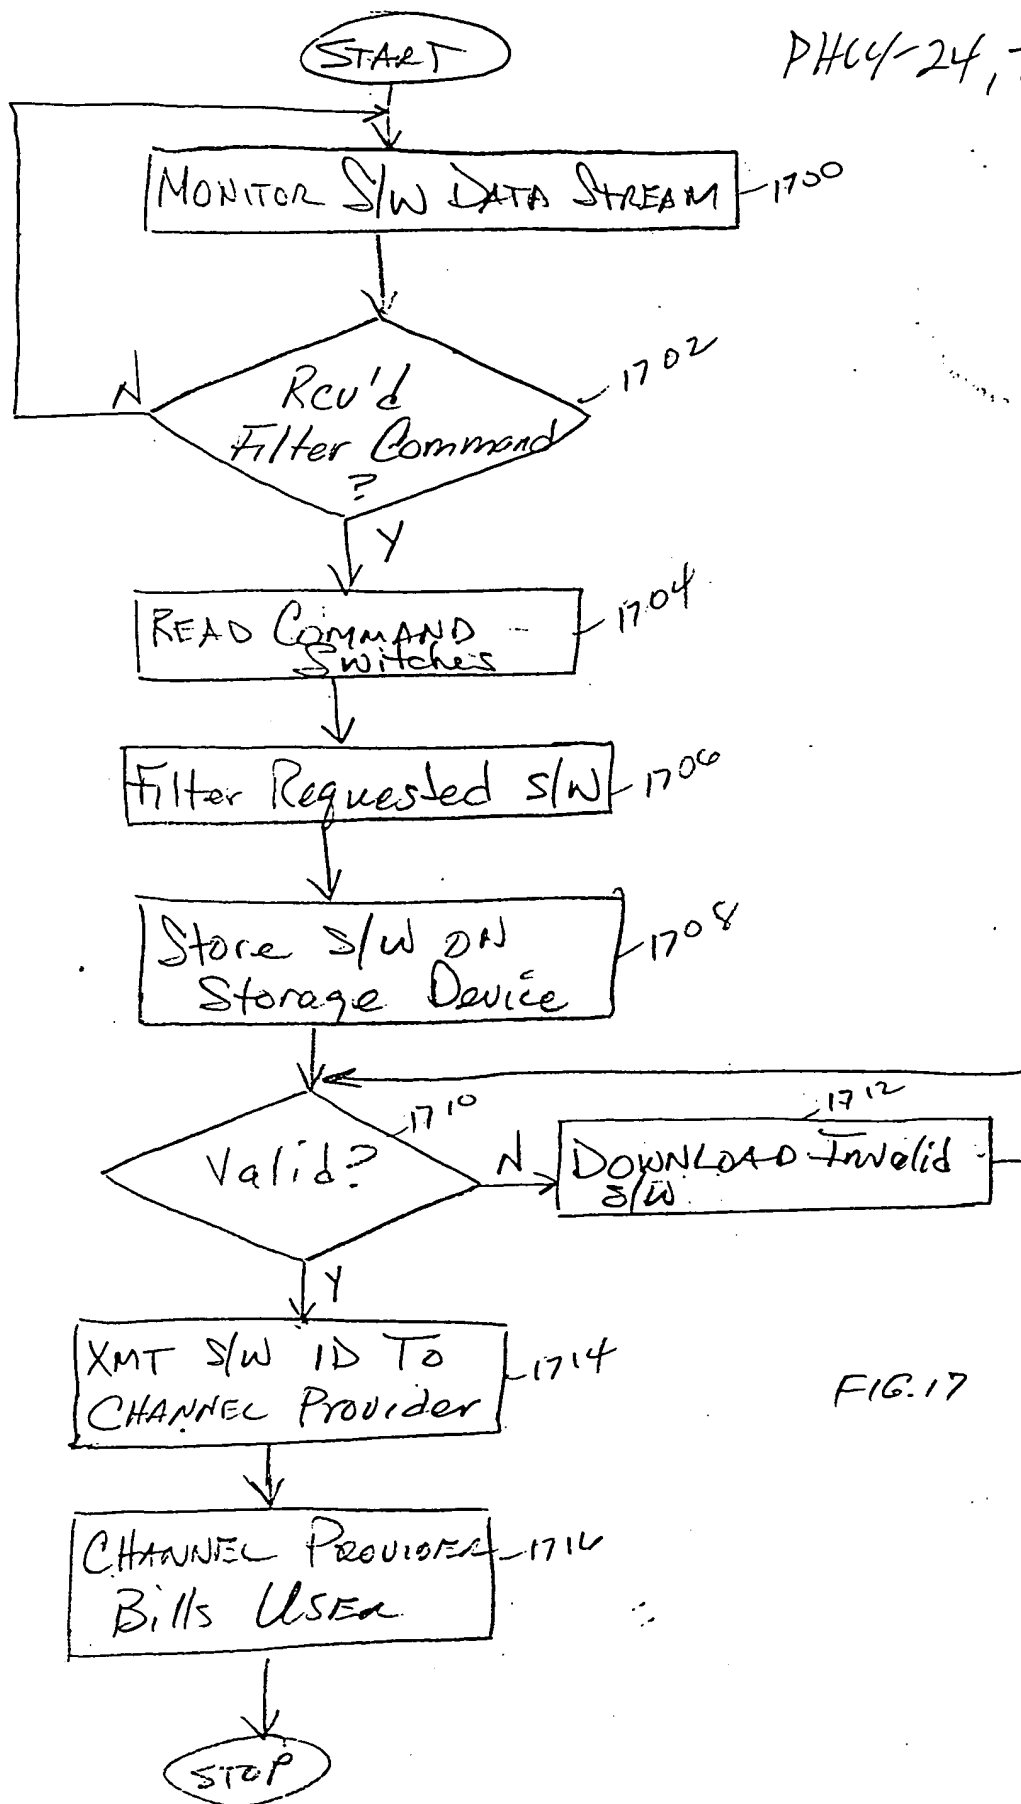 START
PHCY-24,
MONITOR S/W DATA STREAM
1700
N
Rcv'd
Filter Command
?
1702
Y
READ COMMAND
Switches
1704
Filter Requested S/W
1706
Store S/W ON
Storage Device
1708
Valid?
1710
N
DOWNLOAD Invalid
S/W
1712
Y
XMT S/W ID TO
CHANNEL Provider
1714
FIG.17
CHANNEL PROVIDER
Bills USER
1716
STOP